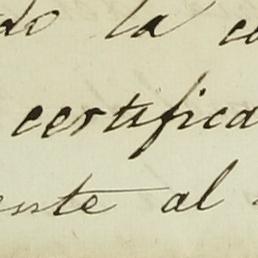 do la co
certifica
ente al